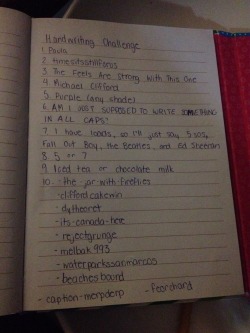 Handwriting Challenge
1. Paula
2. timesitsstillforus
3. The Feels Are Strong With This One
4. Michael Clifford
5. Purple (any shade)
6. AM I JUST SUPPOSED TO WRITE SOMETHING
IN ALL CAPS?
7. I have loads, so I'll just say, 5 SOS,
Fall Out Boy, the Beatles, and Ed Sheeran
8. 5 or 7
9. Iced tea or chocolate milk
10. - the-jar-with-fireflies
- cliffordcakemin
- its-canada-here
- rejectgrunge
- melbak993
- waterparkssanmarcos
- beachesbound
- caption-merpderp - fearchord